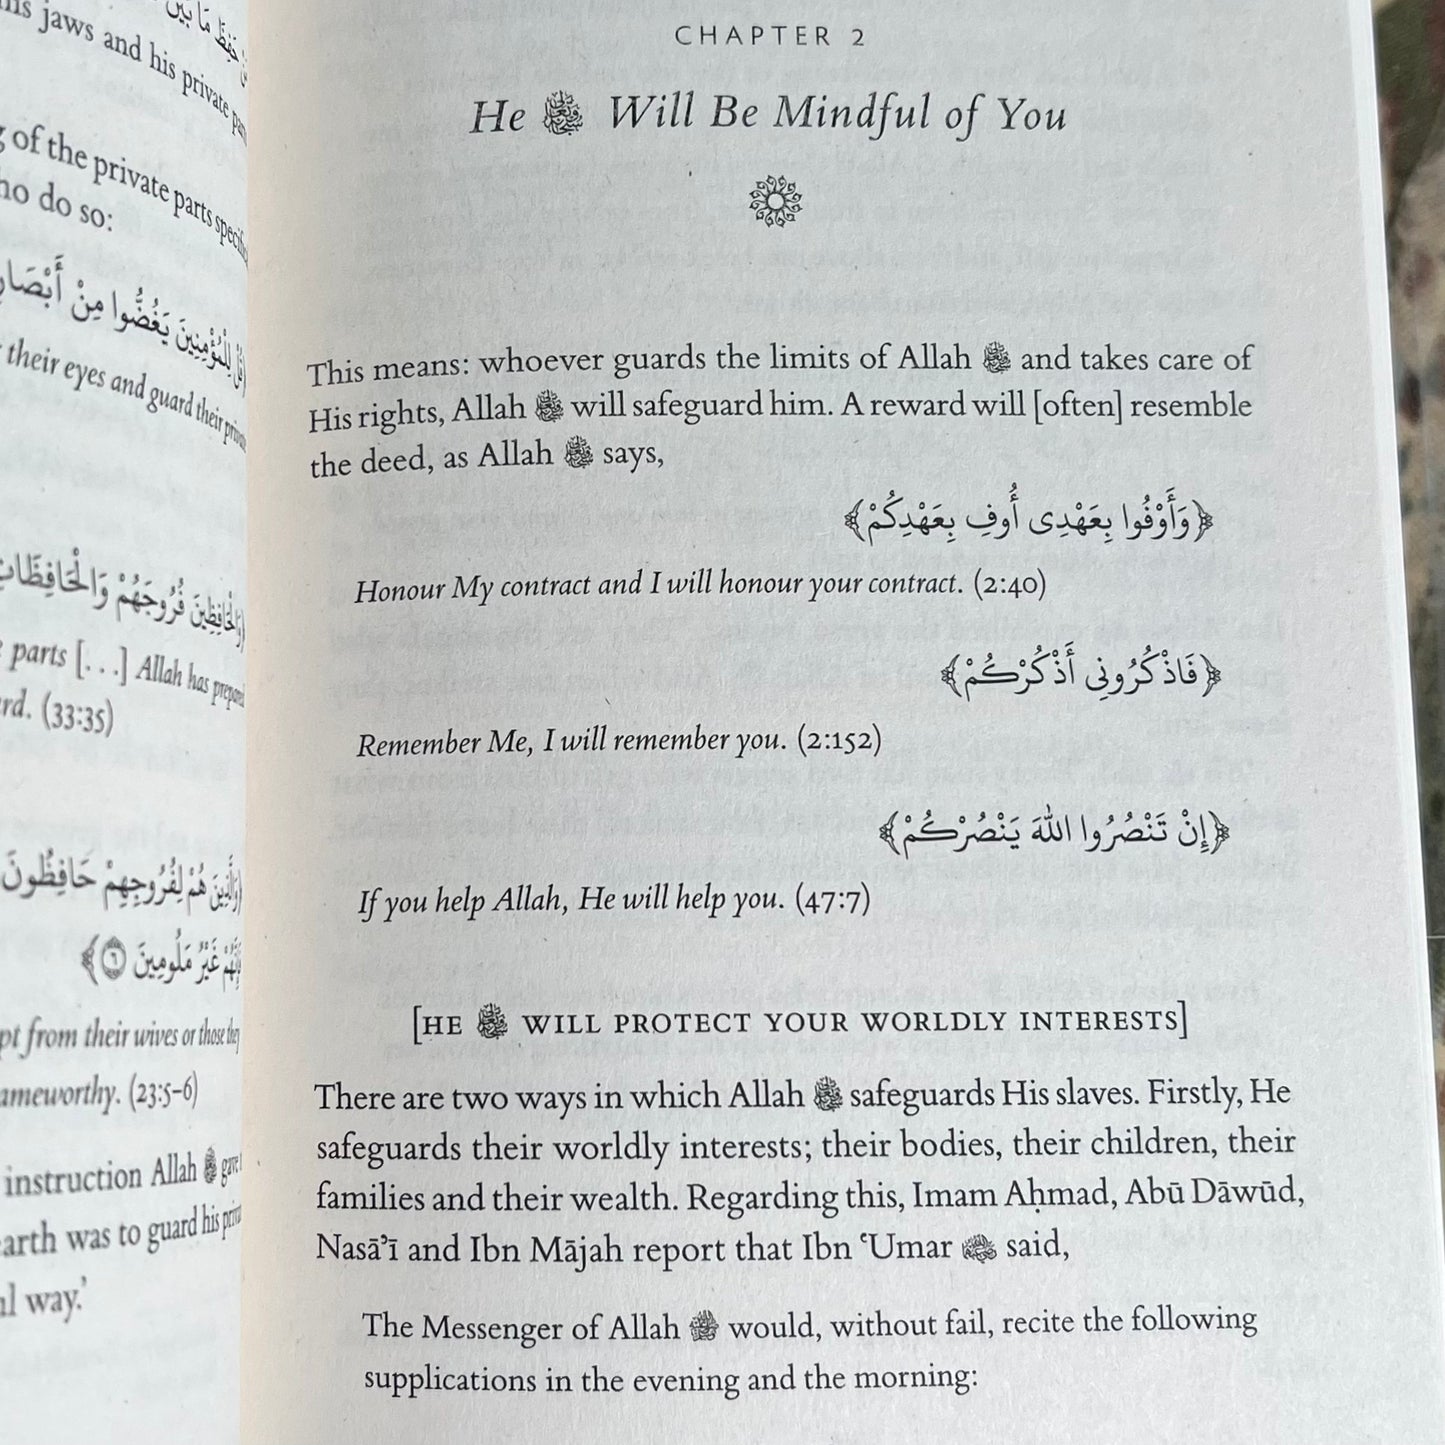 his jaws and his private
of the private parts
who do so:
their eyes and guard their
وَالْحَافِظِينَ فُرُوجَهُمْ وَالْحَافِظَاتِ
parts [. . .] Allah has
(33:35)
هُمْ لِفُرُوجِهِمْ حَافِظُونَ
غَيْرُ مَلُومِينَ ٦﴾
from their wives or those they
(23:5–6)
instruction Allah
earth was to guard his
way.’
CHAPTER 2
He ﷻ Will Be Mindful of You
This means: whoever guards the limits of Allah ﷻ and takes care of
His rights, Allah ﷻ will safeguard him. A reward will [often] resemble
the deed, as Allah ﷻ says,
﴿وَأَوْفُوا بِعَهْدِى أُوفِ بِعَهْدِكُمْ﴾
Honour My contract and I will honour your contract. (2:40)
﴿فَاذْكُرُونِى أَذْكُرْكُمْ﴾
Remember Me, I will remember you. (2:152)
﴿إِنْ تَنْصُرُوا اللهَ يَنْصُرْكُمْ﴾
If you help Allah, He will help you. (47:7)
[HE ﷻ WILL PROTECT YOUR WORLDLY INTERESTS]
There are two ways in which Allah ﷻ safeguards His slaves. Firstly, He
safeguards their worldly interests; their bodies, their children, their
families and their wealth. Regarding this, Imam Aḥmad, Abū Dāwūd,
Nasāʾī and Ibn Mājah report that Ibn ʿUmar said,
The Messenger of Allah ﷺ would, without fail, recite the following
supplications in the evening and the morning: